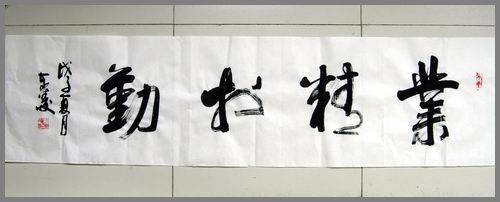 業精於勤
戊子夏月